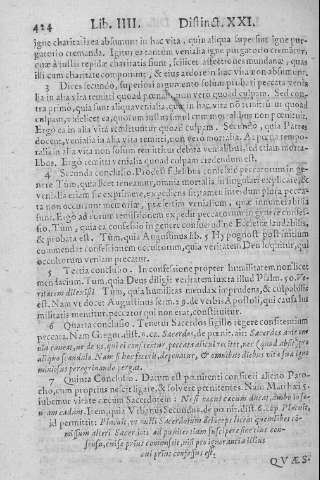 424 Lib. IIII. Distinct. XXI.
igne charitatis ea absumunt in hac vita, quin aliqua supersint igne pur-
gatorio cremanda. Igitur ea tantùm venialia igne purgatorio cremātur,
quæ à iustis tepidæ charitatis fiunt, scilicet affectiones mundanæ, quas
illi cum charitate componunt, & eius ardore in hac vita non absumunt.
3 Dices secundò, superiori argumento solùm probari peccata venia
lia in alia vita remitti quoad pœnā, quàm vero quoad culpam. Sed con-
tra primò, quia sunt aliqua venialia, quæ in hac vita nō remittūtur quoad
culpam, videlicet ea, quorum iustus simul cum mortalibus non pœnituit.
Ergo ea in alia vita remittuntur quoad culpam. Secundò, quia Patres
docent, venialia in alia vita remitti, non vero mortalia. At pœna tempo-
ralis in illa vita non solùm remittitur debita venialibus, sed etiam morta-
libus. Ergo remitti venialia quoad culpam credendum est.
4 Secunda conclusio. Process fidelibus confessio peccatorum in ge-
nere Tùm, quia licet teneantur, omnia mortalia in singulari explicare, &
venialia etiam sic exprimere, ea
ta non occurrunt memoriæ, præsertim venialium, quæ innumerabilia
sunt. Ergo ad horum remissionem ex, edit peccatorum in genere confes-
sio. Tùm, quia ea confessio in genere consuetudine Ecclesiæ laudabilis,
& probata est. Tùm, quia Augustinus lib. 5 Hypognost. post initium
commendat confessariorum occultorum, quia veritatem Deus loquitur, qui
occultorum veniam precatur.
5 Tertia conclusio. In confessione propter humilitatem non licet
mentiri factum. Tùm, quia Deus diligit veritatem iuxta illud Psalm. 50. Ve
ritatem dilexisti. Tùm, quia humilitas mendax imprudens, & culpabilis
est. Nam vt docet Augustinus serm. 29. de verbis Apostoli, qui causa hu
militatis mentitur, peccator qui non erat, constituitur.
6 Quarta conclusio. Tenetur Sacerdos sigillo tegere confitentium
peccata. Nam Gregor. dist. 6. ca. Sacerdos, de pœnit. ait: Sacerdos ante om
nia caueat, ne de his, qui ei confitentur, peccata alicui recitet, nec quod absit pro
aliquo scandalo. Nam si hoc fecerit, deponatur, & omnibus diebus vita sua igno
miniosus peregrinando pergat.
7 Quinta Conclusio. Datum est pœnitenti confiteri alieno Paro-
cho, cum proprius nescit ligare, & solvere pœnitentes. Nam Matthæi 5.
iubemur vitare cæcum Sacerdotem: Nē si cæcus cæcum ducat, ambo in fo-
ueam cadant. Item, quia Vrbanus Secundus, de pœnit. dist. 6. cap. Placuit,
id permittit: Placuit, vt nulli Sacerdotum deinceps liceat quemlibet cō-
missum alteri Sacerdoti ad pœnitentiam suscipere sine eius con-
sensu, cui se prius commisit, nisi pro ignorantia illius
cui prius confessus est.
QVÆS-